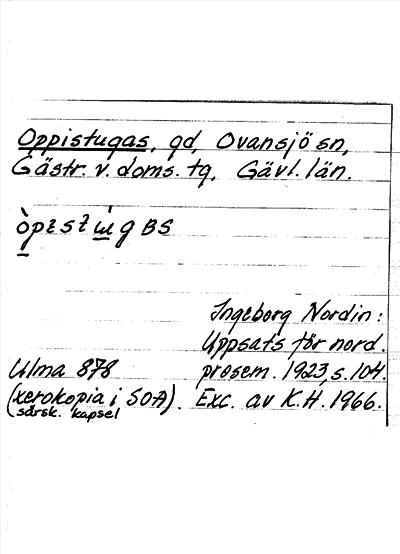 Oppistugas, gd, Ovansjö sn,
Gästr. v. doms. tg, Gävl. län.
Ingeborg Nordin:
Uppsats för nord.
Ulma 878 prosem. 1923, s. 104.
(xerokopia i SOA). Exc. av K.H. 1966.
särsk. kapsel